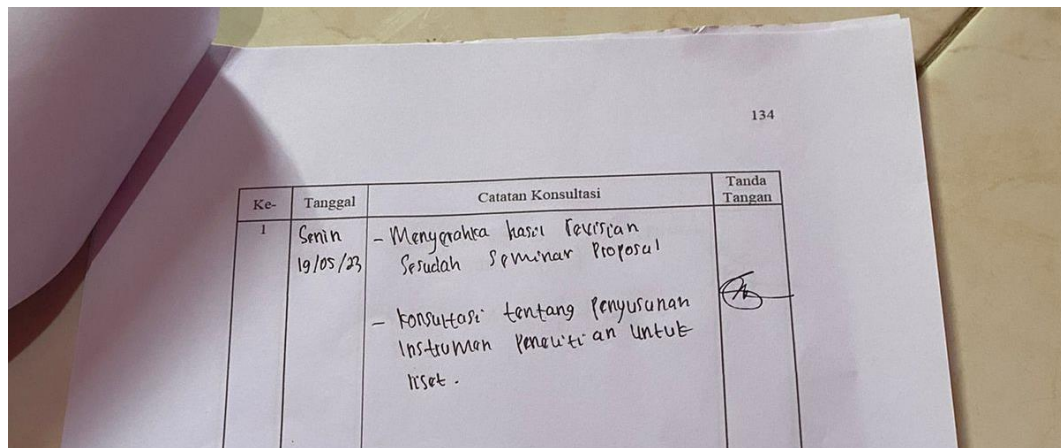 134
Ke-
Tanggal
Catatan Konsultasi
Tanda
Tangan
1
Senin
19/05/23
- Menyerahka hasil revisian
Sesudah Seminar Proposal
- konsultasi tentang Penyusunan
Instrumen Penelitian untuk
riset.